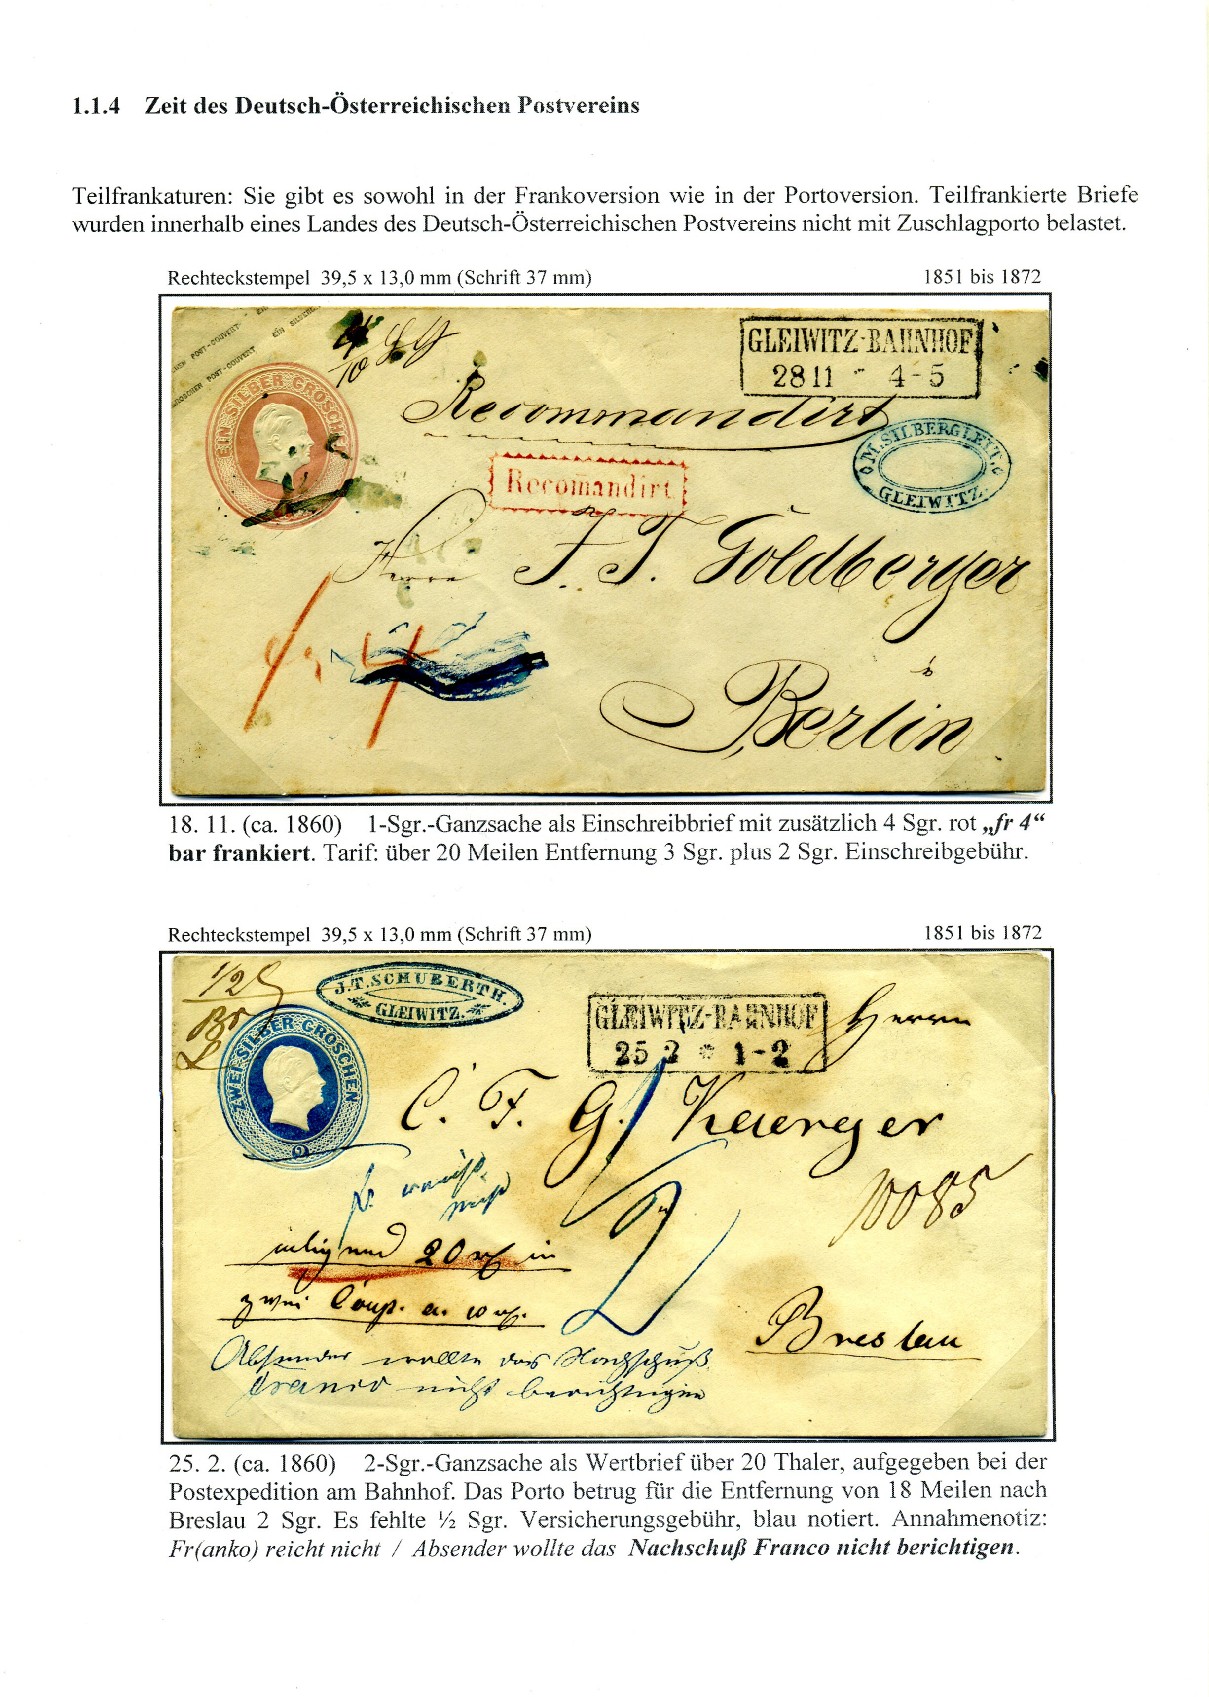 1.1.4 Zeit des Deutsch-Österreichischen Postvereins
Teilfrankaturen: Sie gibt es sowohl in der Frankoversion wie in der Portoversion. Teilfrankierte Briefe
wurden innerhalb eines Landes des Deutsch-Österreichischen Postvereins nicht mit Zuschlagporto belastet.
Rechteckstempel 39,5 x 13,0 mm (Schrift 37 mm) 1851 bis 1872
POST-COUVERT
EIN SILBER GROSCHEN
GLEIWITZ-BAHNHOF
28 11 4-5
Recommandirt
M. SILBERGLEIT.
GLEIWITZ.
Recomandirt
Herrn F. T. Goldberger
Berlin
18. 11. (ca. 1860) 1-Sgr.-Ganzsache als Einschreibbrief mit zusätzlich 4 Sgr. rot „fr 4“
bar frankiert. Tarif: über 20 Meilen Entfernung 3 Sgr. plus 2 Sgr. Einschreibgebühr.
Rechteckstempel 39,5 x 13,0 mm (Schrift 37 mm) 1851 bis 1872
1/2
J.T. SCHUBERTH.
GLEIWITZ.
ZWEI SILBER GROSCHEN
2
GLEIWITZ-BAHNHOF
25 2 * 1-2
Herrn
C. F. G. Kaerger
10085
1/2
20 in
zwei Coup. a. 10
Breslau
Absender wollte das Nachschuß
franco nicht berichtigen
25. 2. (ca. 1860) 2-Sgr.-Ganzsache als Wertbrief über 20 Thaler, aufgegeben bei der
Postexpedition am Bahnhof. Das Porto betrug für die Entfernung von 18 Meilen nach
Breslau 2 Sgr. Es fehlte ½ Sgr. Versicherungsgebühr, blau notiert. Annahmenotiz:
Fr(anko) reicht nicht / Absender wollte das Nachschuß Franco nicht berichtigen.